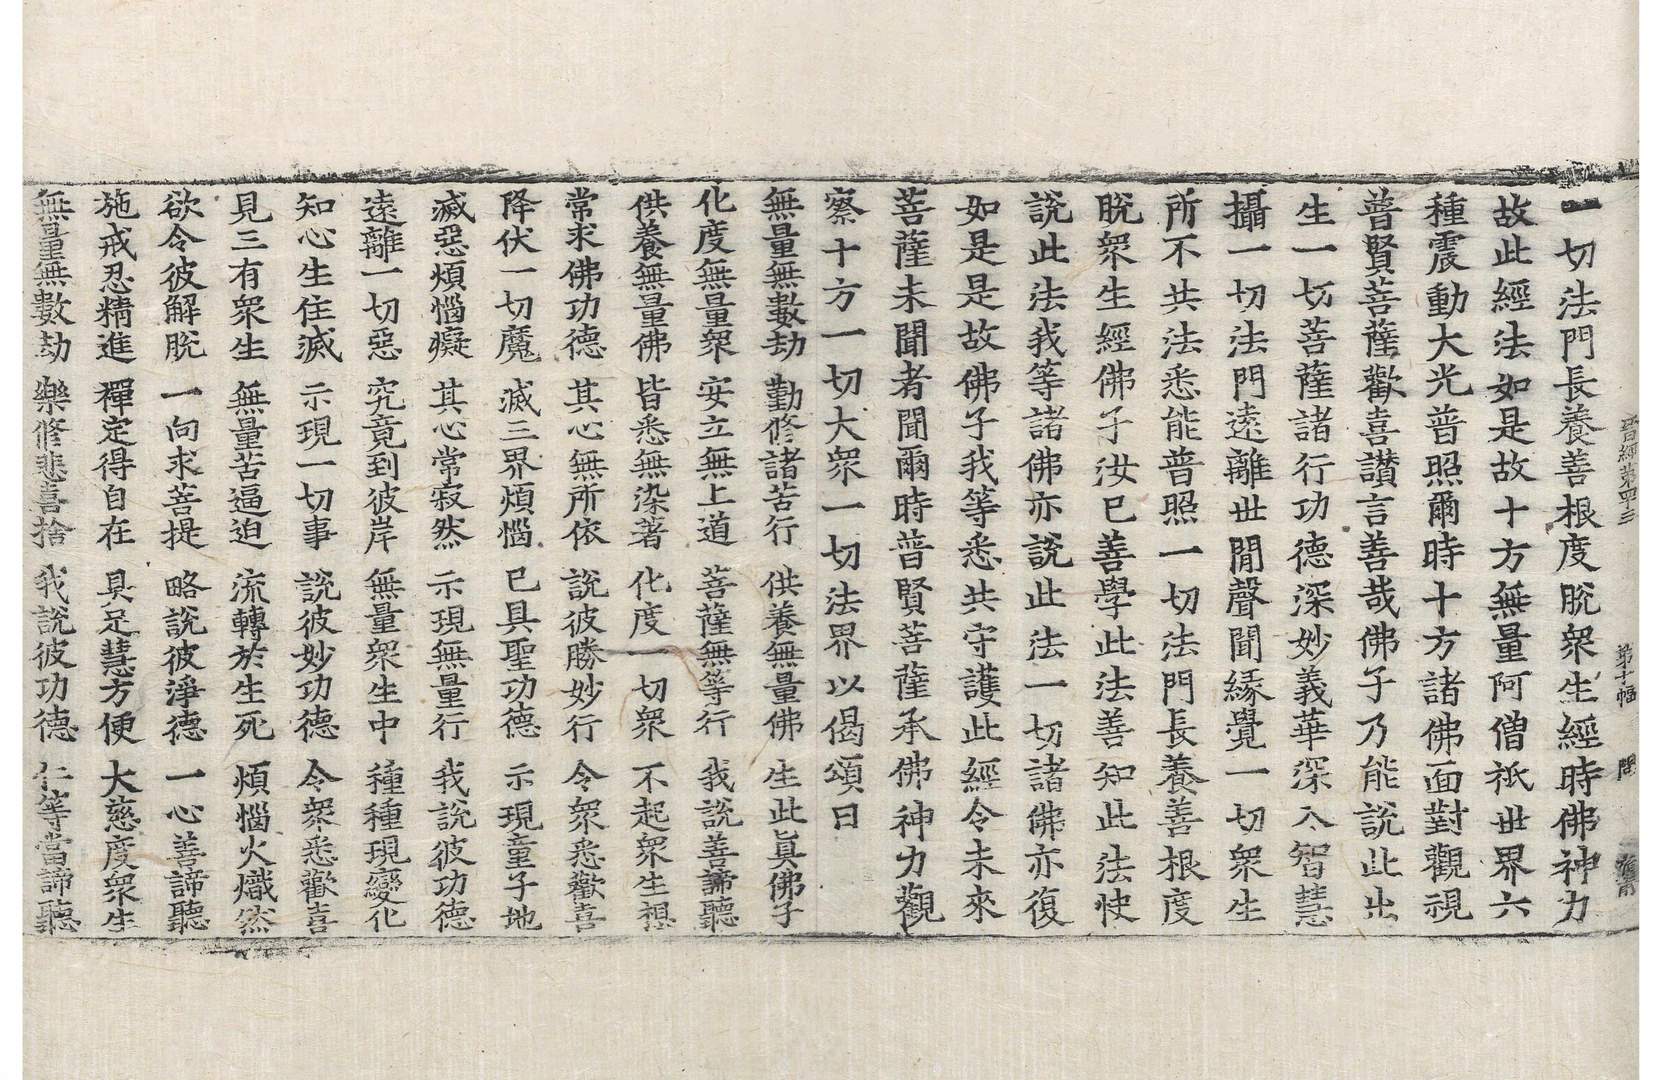 晉經第四十三　第十幅　問
一切法門長養善根度脫衆生經時佛神力
故此經法如是故十方無量阿僧祇世界六
種震動大光普照爾時十方諸佛面對觀視
普賢菩薩歡喜讃言善哉佛子乃能說此出
生一切菩薩諸行功德深妙義華深入智慧
攝一切法門遠離世閒聲聞緣覺一切衆生
所不共法悉能普照一切法門長養善根度
脫衆生經佛子汝已善學此法善知此法快
說此法我等諸佛亦說此法一切諸佛亦復
如是是故佛子我等悉共守護此經令未來
菩薩未聞者聞爾時普賢菩薩承佛神力觀
察十方一切大衆一切法界以偈頌曰
無量無數劫　勤修諸苦行　供養無量佛　生此眞佛子
化度無量衆　安立無上道　菩薩無等行　我說善諦聽
供養無量佛　皆悉無染著　化度一切衆　不起衆生想
常求佛功德　其心無所依　說彼勝妙行　令衆悉歡喜
降伏一切魔　滅三界煩惱　已具聖功德　示現童子地
滅惡煩惱癡　其心常寂然　示現無量行　我說彼功德
遠離一切惡　究竟到彼岸　無量衆生中　種種現變化
知心生住滅　示現一切事　說彼妙功德　令衆悉歡喜
見三有衆生　無量苦逼迫　流轉於生死　煩惱火熾然
欲令彼解脫　一向求菩提　略說彼淨德　一心善諦聽
施戒忍精進　禪定得自在　具足慧方便　大慈度衆生
無量無數劫　樂修悲喜捨　我說彼功德　仁等當諦聽